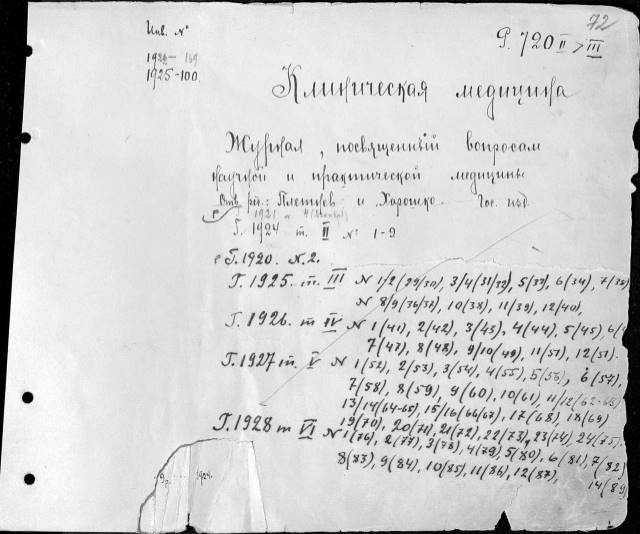 72
Р. 720 II > III
Инв. №
1924— 169
1925-100.
Клиническая медицина
Журнал, посвященный вопросам
научной и практической медицины
Отв. ред.: Плетнев и Хорошко. Гос. изд.
1921 4
Г. 1924 т. II № 1-9
Г. 1920. N. 2.
Г. 1925. т. III N 1/2 (29/30), 3/4 (31/32), 5(33), 6(34), 7(35)
N 8/9 (36/37), 10(38), 11(39), 12(40),
Г. 1926. т IV N 1(41), 2(42), 3(43), 4(44), 5(45), 6(
7(47), 8(48), 9/10(49), 11(51), 12(51).
Г. 1927 т. V N 1(52), 2(53), 3(54), 4(55), 5(56), 6(57),
7(58), 8(59), 9(60), 10(61), 11/12(62-63)
13/14(64-65), 15/16(66/67), 17(68), 18(69)
19(70), 20(71), 21(72), 22(73), 23(74), 24(75).
Г. 1928 т VI N 1(76), 2(77), 3(78), 4(79), 5(80), 6(81), 7(82)
8(83), 9(84), 10(85), 11(86), 12(87),
14(89)
1924.